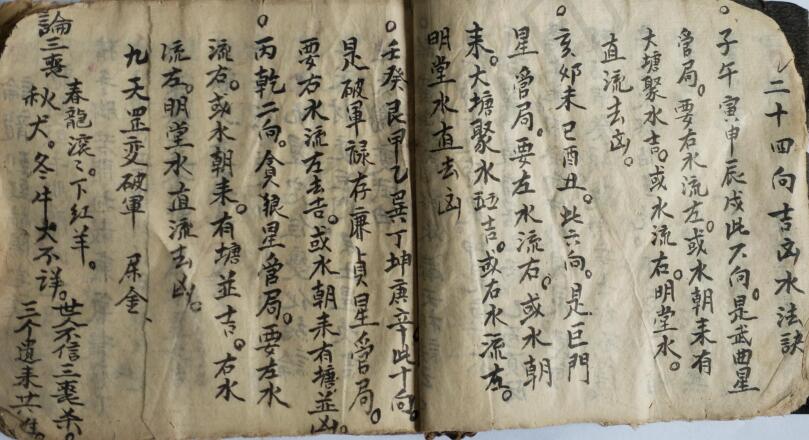 二十四向吉凶水法訣
。子午寅申辰戌此六向。是武曲星
管局。要右水流左。或水朝来有
大塘聚水吉。或水流右。明堂水。
直流去凶。
。亥卯未巳酉丑。此六向。是巨門
星管局。要左水流右。或水朝
来。大塘聚水吉。或右水流左。
明堂水直去凶
。壬癸艮甲乙巽丁坤庚辛此十向。
是破軍祿存廉貞星管局。
要右水流左去吉。或水朝来有塘並凶。
。丙乾二向。貪狼星管局。要左水
流右。或水朝来。有塘並吉。右水
流左。明堂水直流去凶。
九天罡变破軍 屎金
論三煞 春龍滚滚。下紅羊。
秋犬。冬牛大不詳。世人不信三煞杀。
三个遺来共